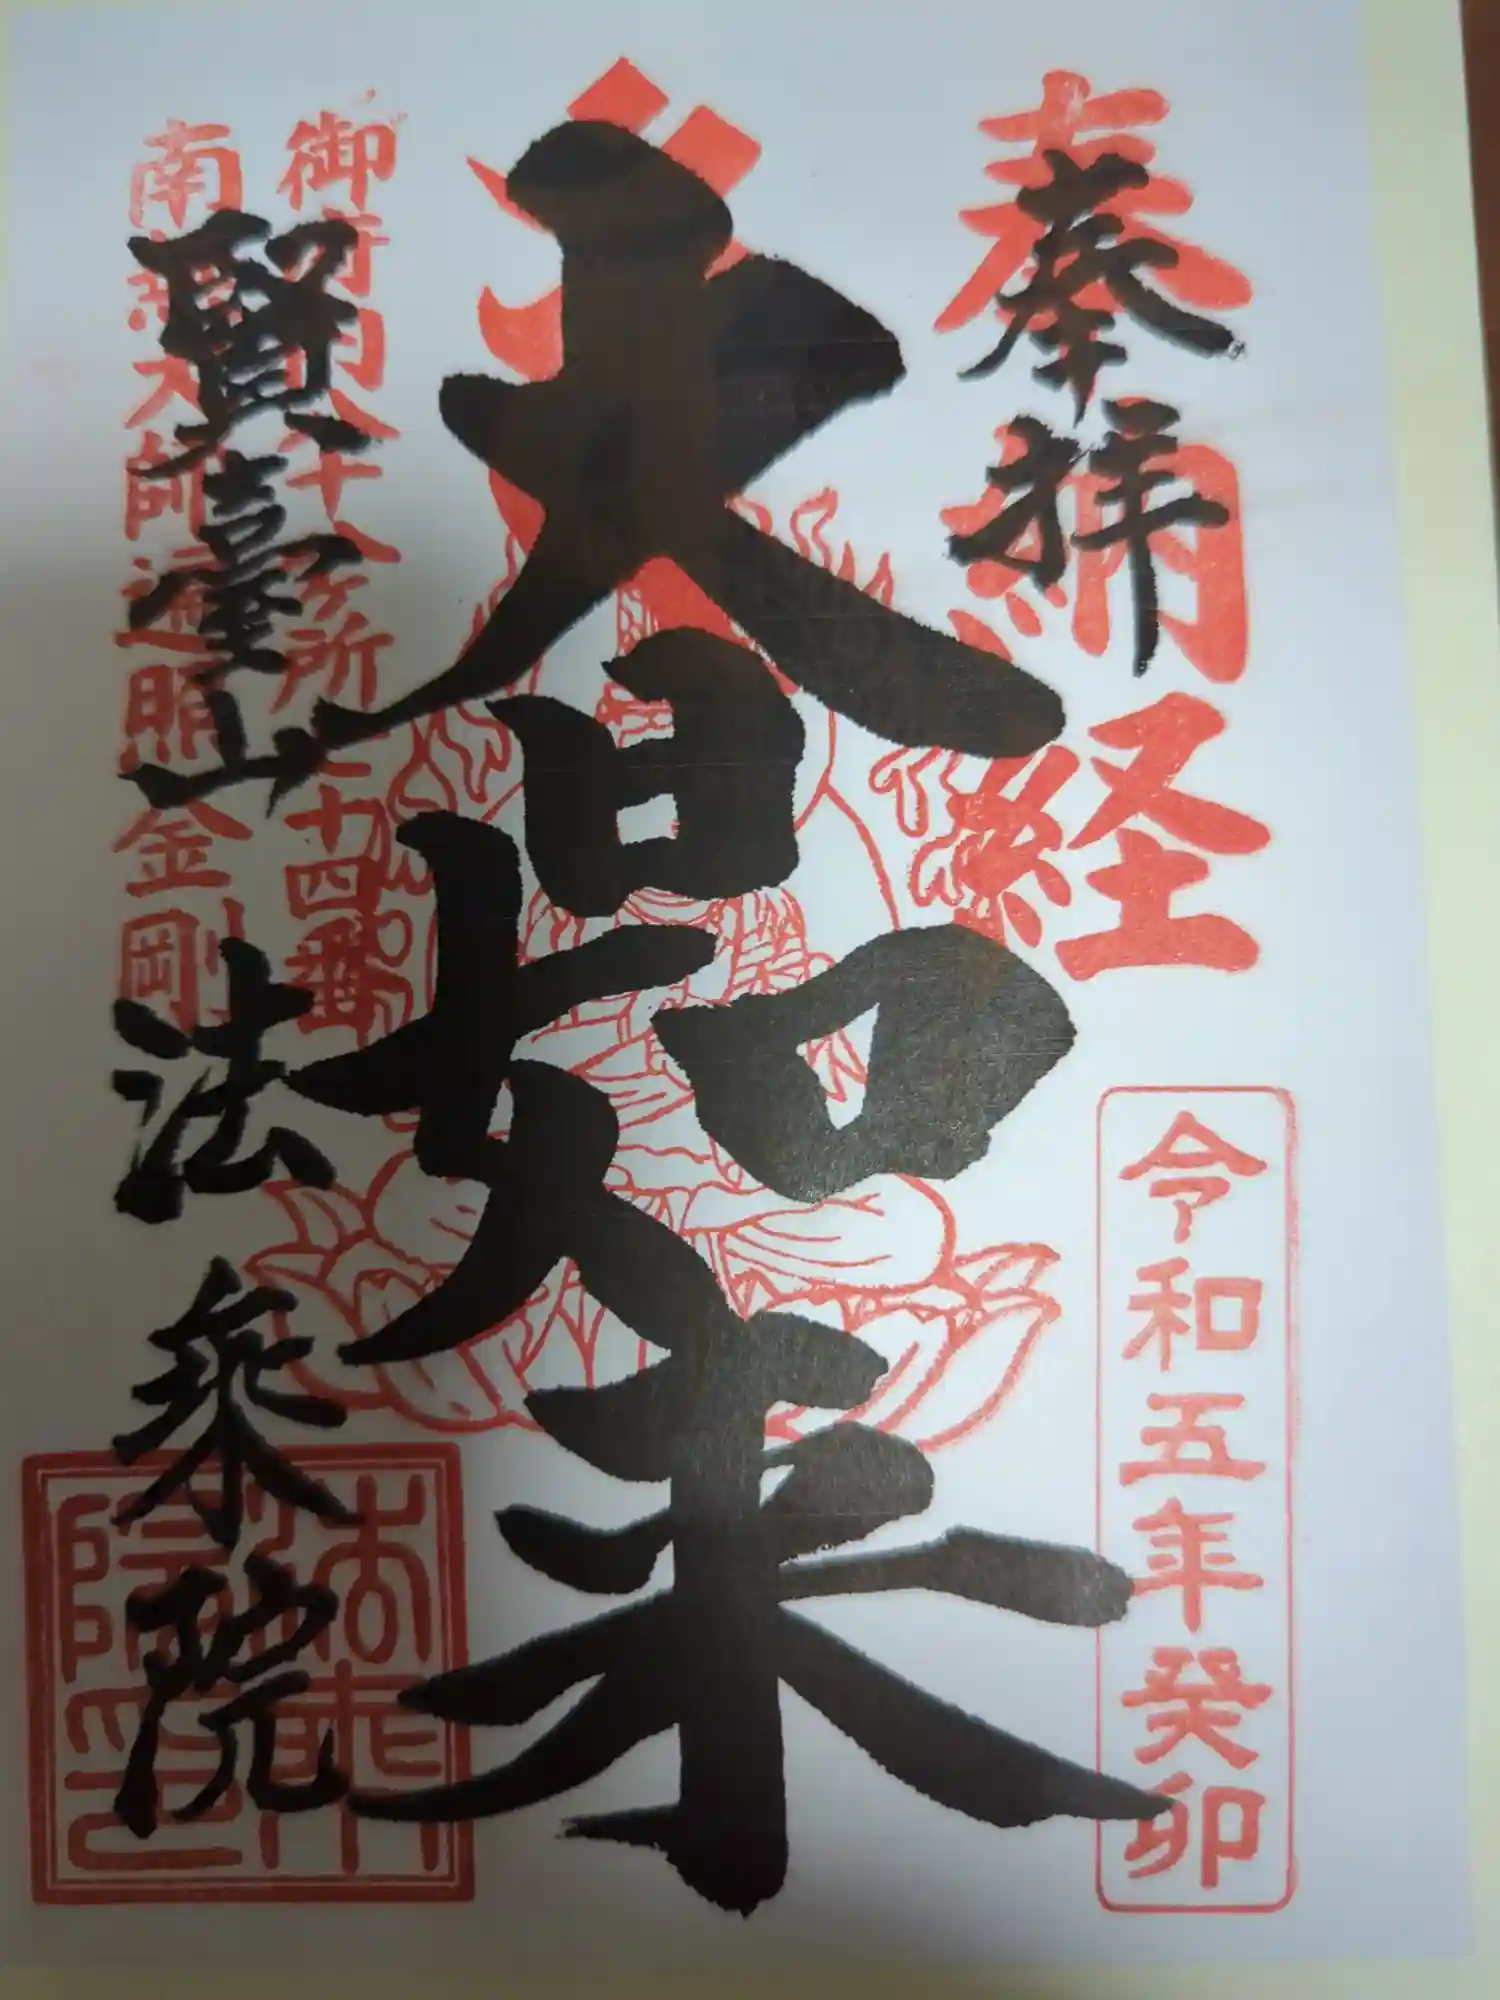 奉拝
奉納経
令和五年癸卯
大日如来
御府内八十八ヶ所二十四番
南無大師遍照金剛
賢臺山
法乗院